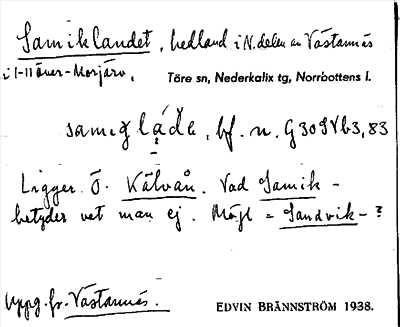 Samiklandet, hedland i N. delen av Västannäs
i I-II Över-Morjärv. Töre sn, Nederkalix tg, Norrbottens l.
bf. n. G 30 S Vb 3, 83
Ligger Ö. Kälvån. Vad Samik-
betyder vet man ej. Möjl = Sandvik-?
Uppg. fr. Västannäs. EDVIN BRÄNNSTRÖM 1938.